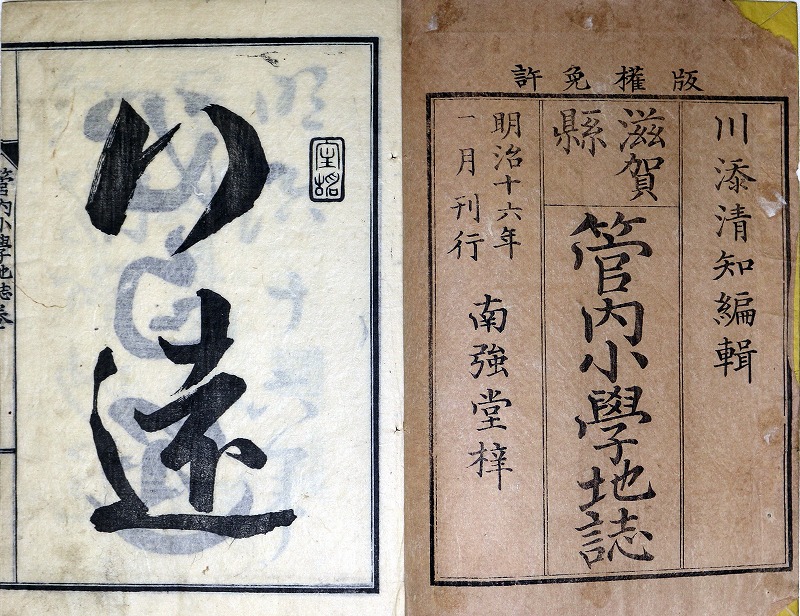 版權免許
川添清知編輯
滋賀縣
管内小學地誌
明治十六年
一月刊行
南強堂梓
遠
管内小學地誌卷